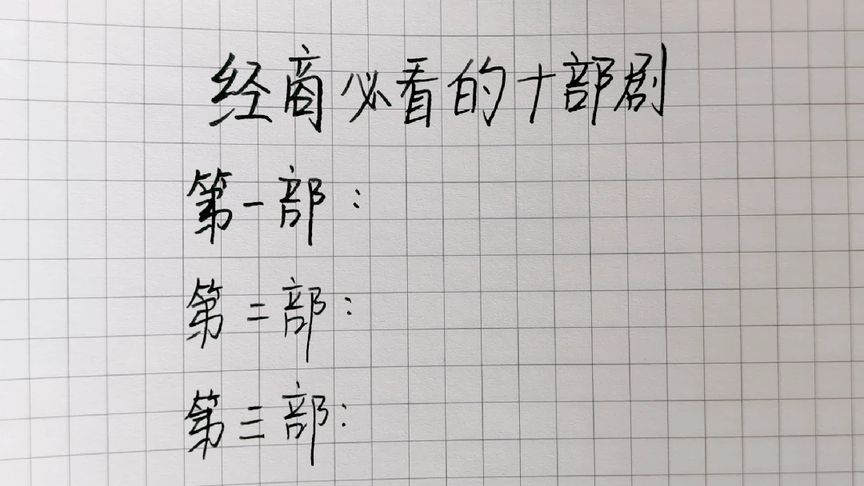 经商必看的十部剧
第一部：
第二部：
第三部：